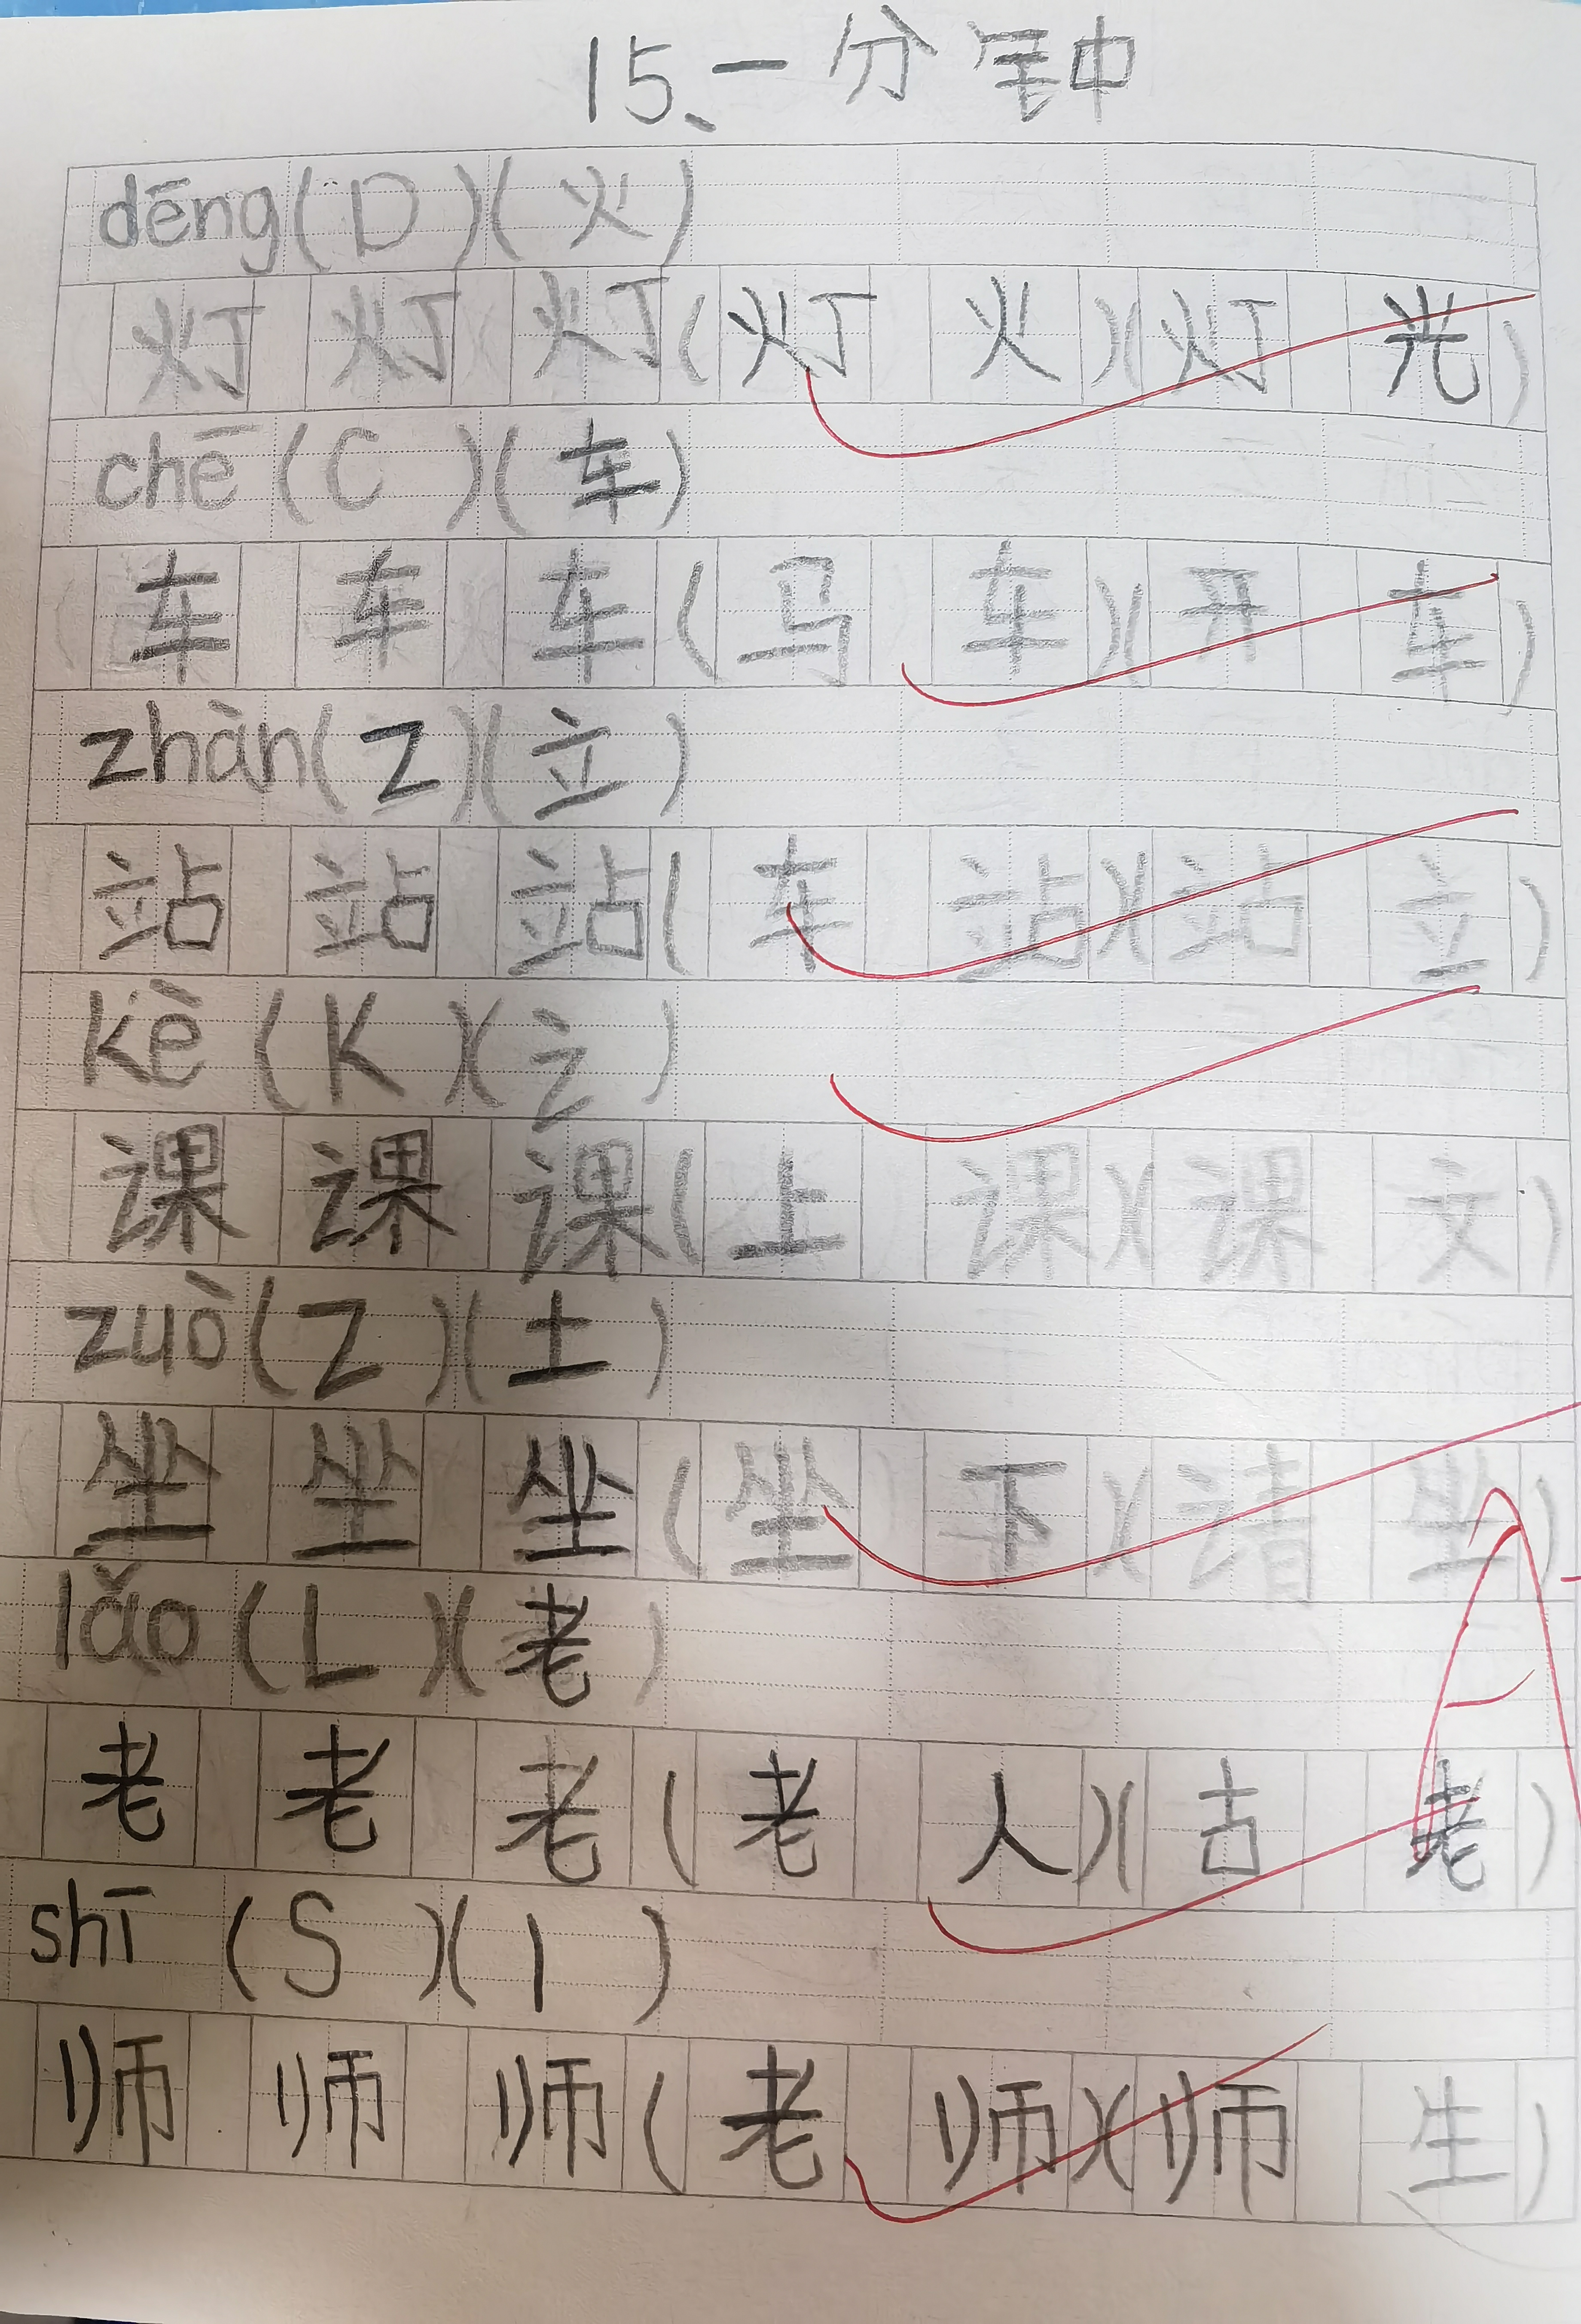 15、一分钟
dēng(D)(火)
灯 灯 灯(灯 火)(灯 光)
chē(C)(车)
车 车 车(马 车)(开 车)
zhàn(Z)(立)
站 站 站(车 站)(站 立)
kè(K)(讠)
课 课 课(上 课)(课 文)
zuò(Z)(土)
坐 坐 坐(坐 下)(请 坐)
lǎo(L)(老)
老 老 老(老 人)(古 老)
shī(S)(丨)
师 师 师(老 师)(师 生)
A